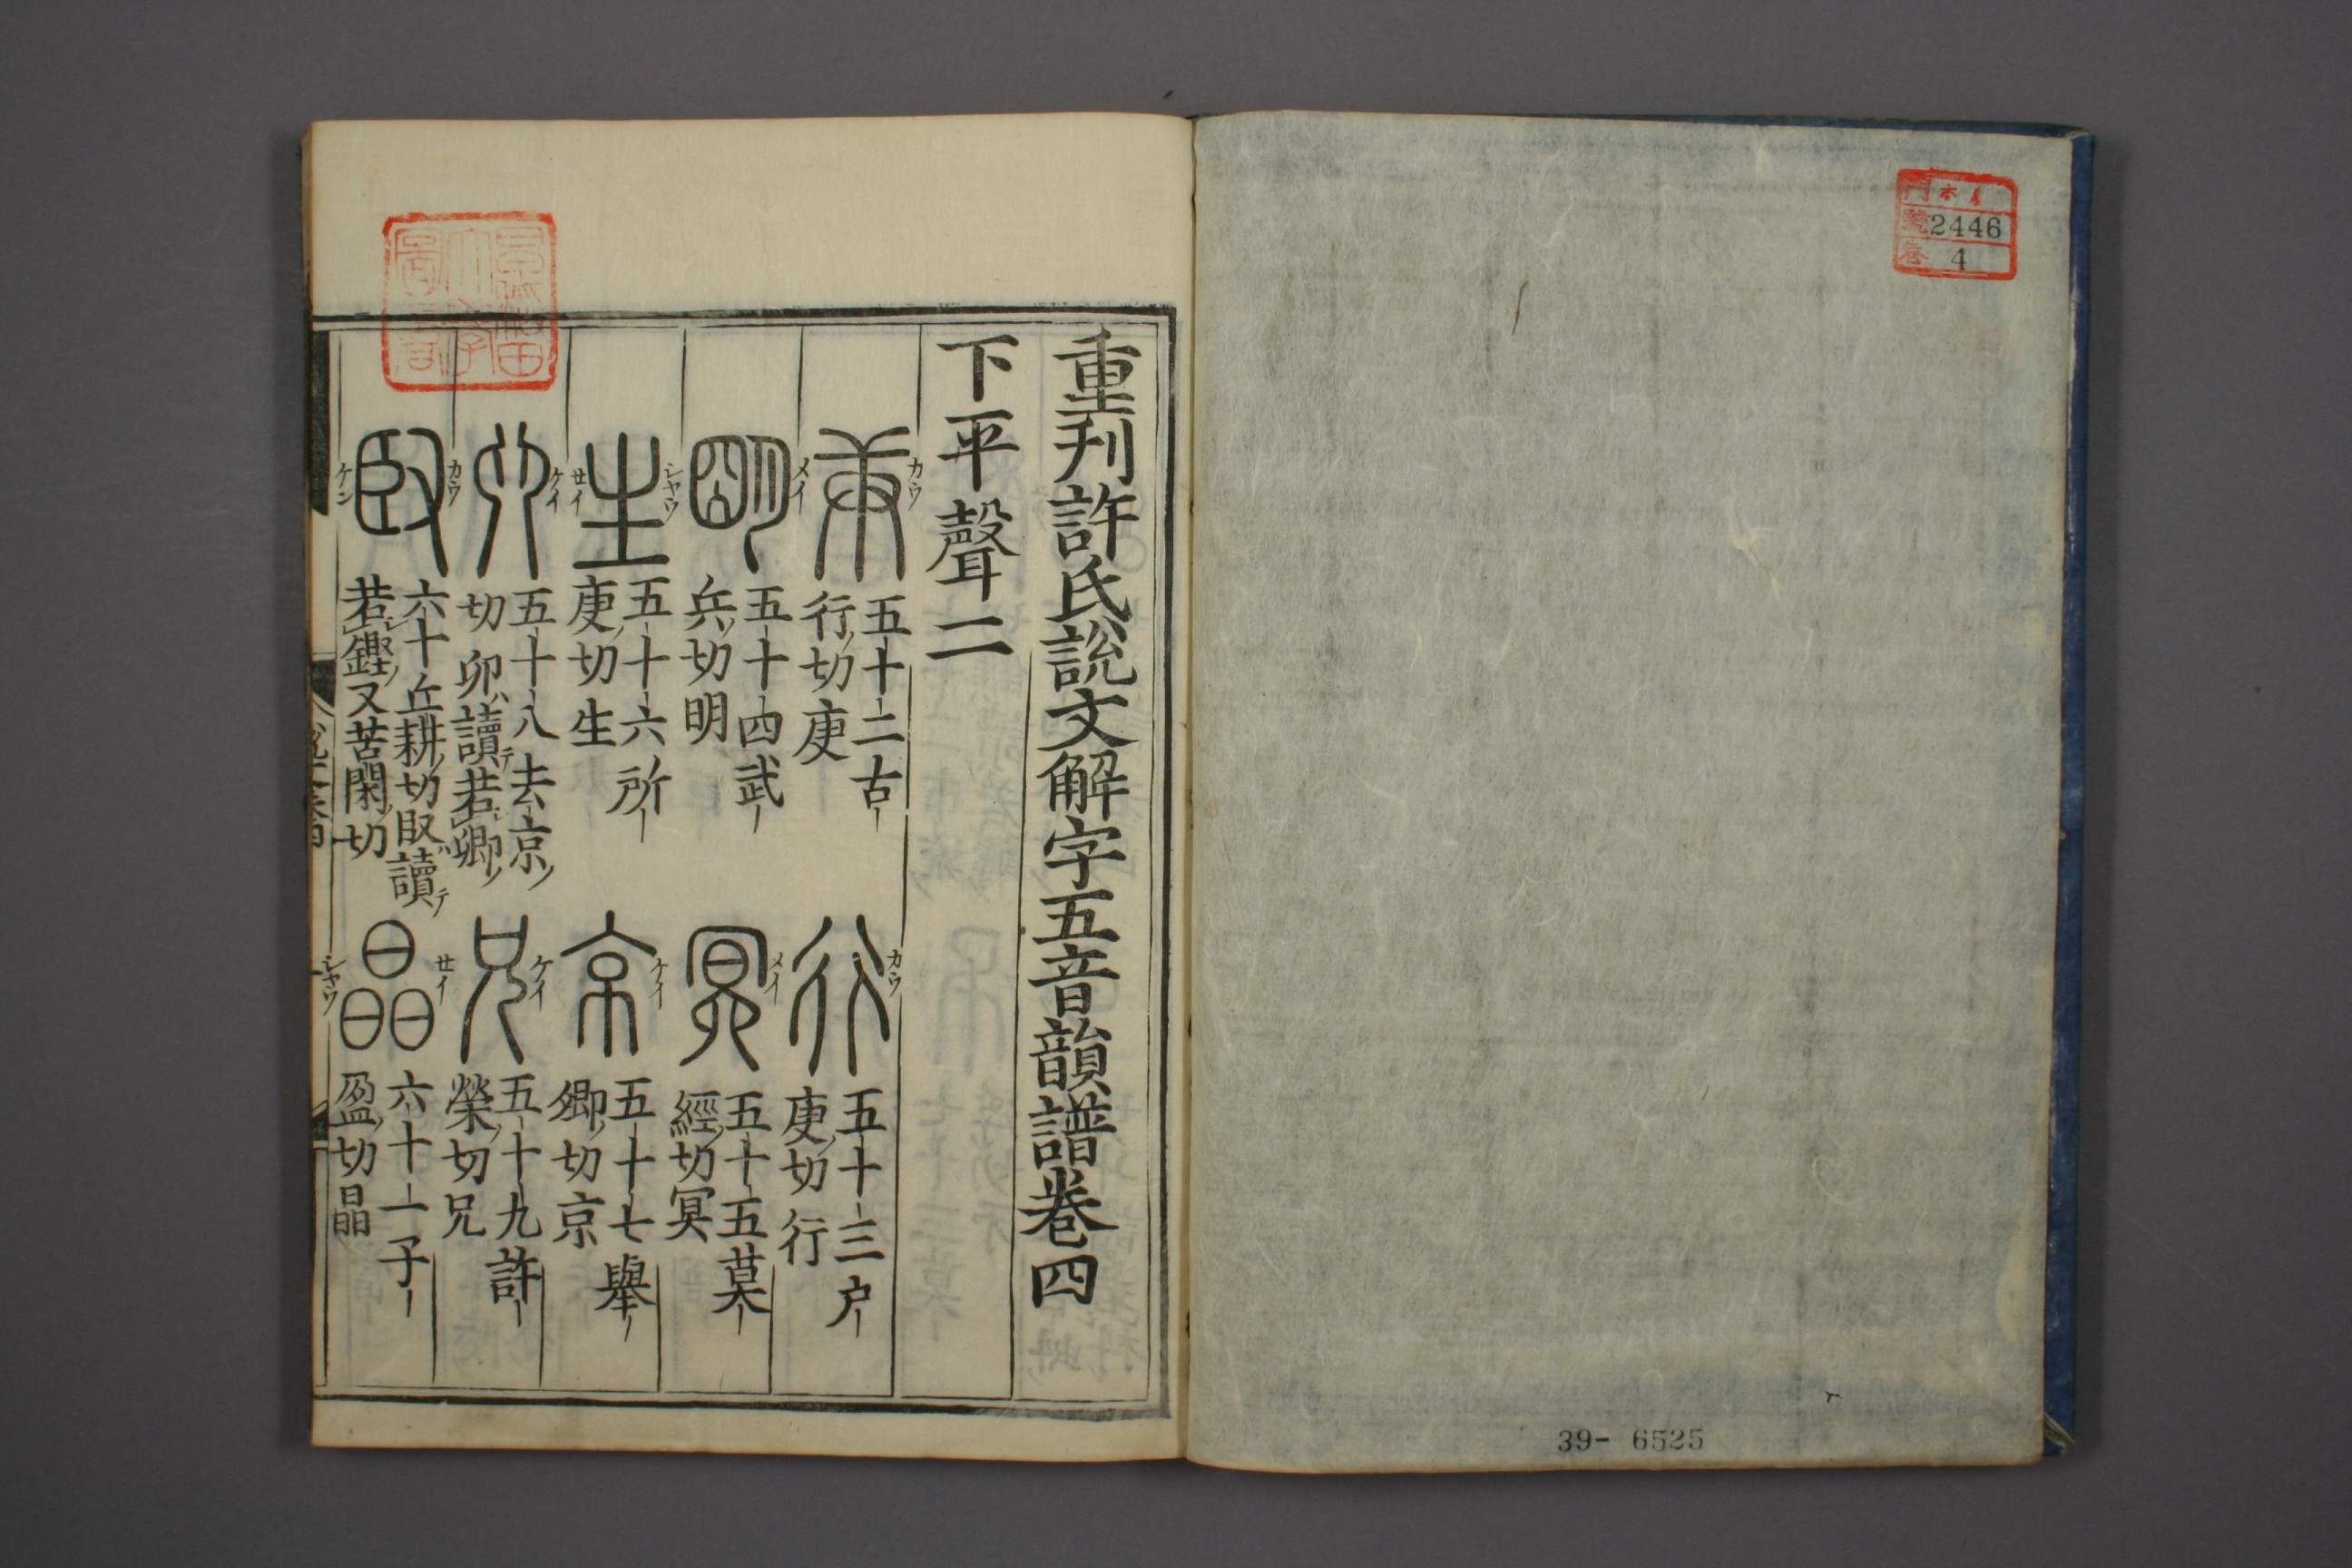 イ本
門
號 2446
卷 4
39- 6525
重刋許氏說文解字五音韻譜卷四
下平聲二
庚 カウ 五十二古行切庚
行 カウ 五十三户庚切行
朙 メイ 五十四武兵切明
冥 メイ 五十五莫經切冥
生 シヤウ セイ 五十六所庚切生
京 ケイ 五十七舉卿切京
𠨍 ケイ カウ 五十八去京切卯讀若卿
兄 ケイ 五十九許榮切兄
臤 カウ ケン 六十丘耕切臤讀若鏗又苦閑切
晶 セイ シヤウ 六十一子盈切晶